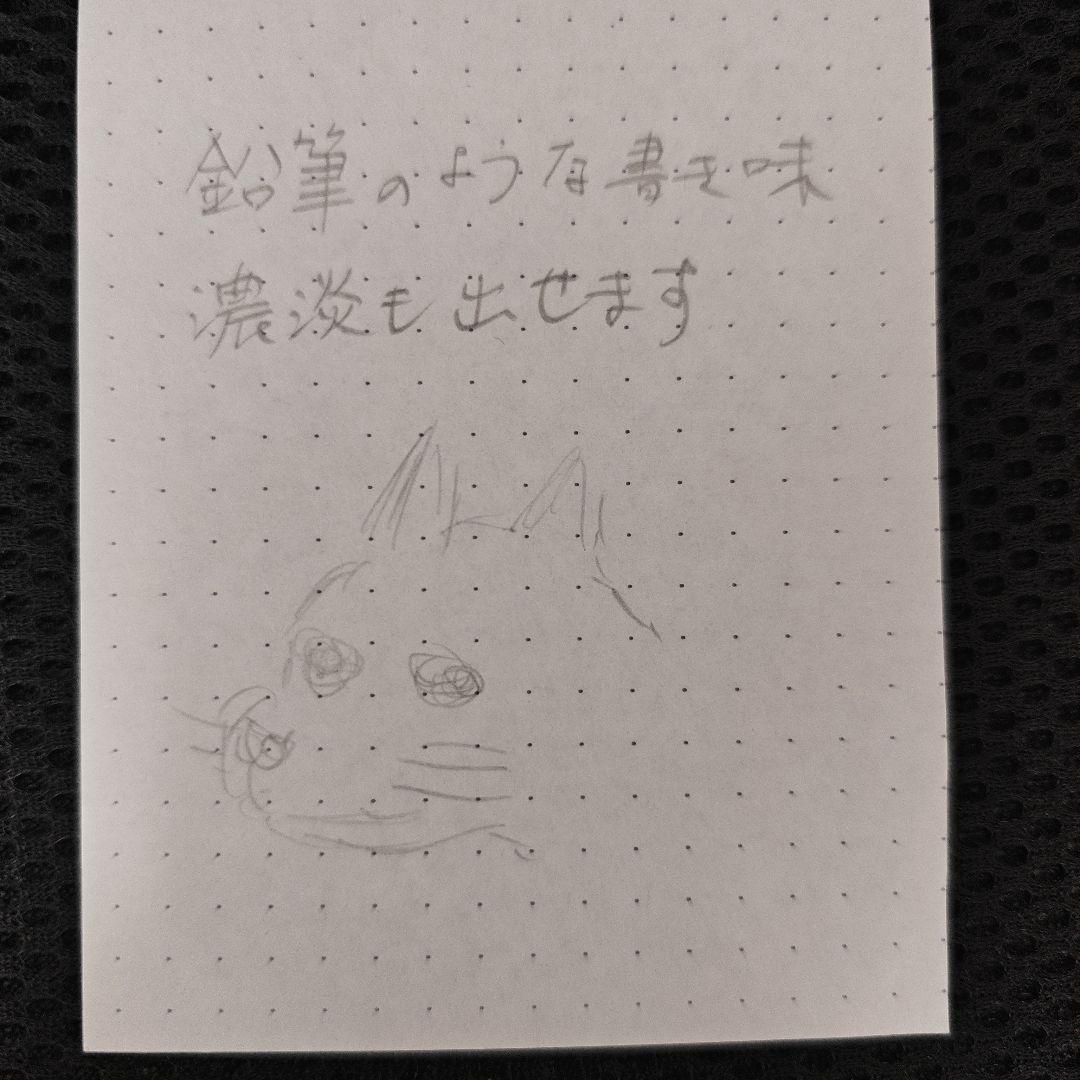 鉛筆のような書き味
濃淡も出せます